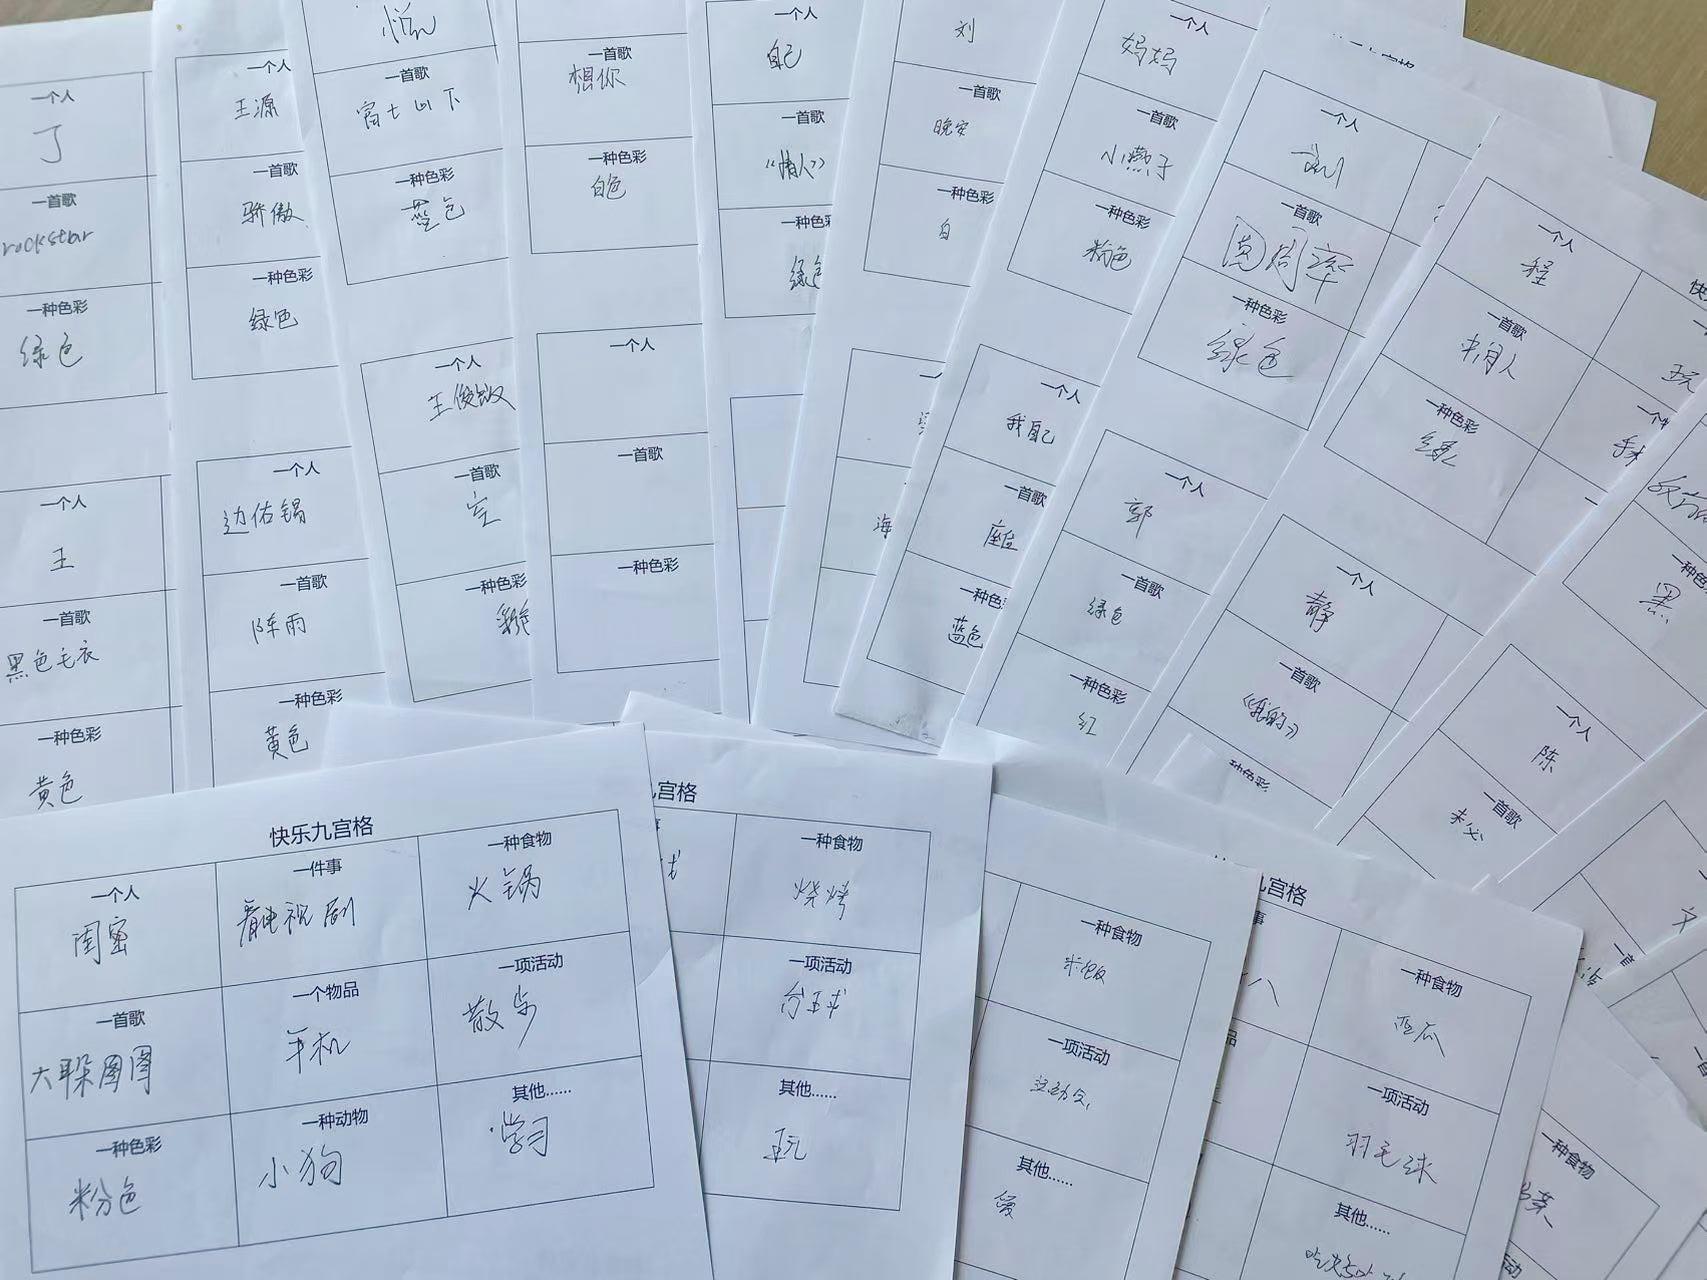 一个人
丁
一首歌
rockstar
一种色彩
绿色
一个人
王
一首歌
黑色毛衣
一种色彩
黄色
一个人
王源
一首歌
骄傲
一种色彩
绿色
一个人
边佑锡
一首歌
阵雨
一种色彩
黄色
悦
一首歌
富士山下
一种色彩
蓝色
一个人
王俊凯
一首歌
空
一种色彩
彩色
一首歌
想你
一种色彩
白色
一个人
一首歌
一种色彩
一个人
自己
一首歌
《情人》
一种色彩
绿色
刘
一首歌
晚安
一种色彩
白
海
一个人
妈妈
一首歌
小燕子
一种色彩
粉色
一个人
我自己
一首歌
座位
一种色
蓝色
一个人
刘
一首歌
圆周率
一种色彩
绿色
一个人
郭
一首歌
绿色
一种色彩
红
一个人
程
一首歌
中间人
一种色彩
绿
一个人
静
一首歌
《我的》
种色彩
快
玩
一个
手
一种色
黑
一个人
陈
一首歌
文
快乐九宫格
一个人
闺蜜
一件事
看电视剧
一种食物
火锅
一首歌
大耳朵图图
一个物品
手机
一项活动
散步
一种色彩
粉色
一种动物
小狗
其他……
学习
九宫格
一种食物
烧烤
一项活动
台球
其他……
玩
一种食物
米饭
一项活动
运动会
其他……
爱
九宫格
事
一种食物
西瓜
品
一项活动
羽毛球
其他……
一种食物
菜
活动